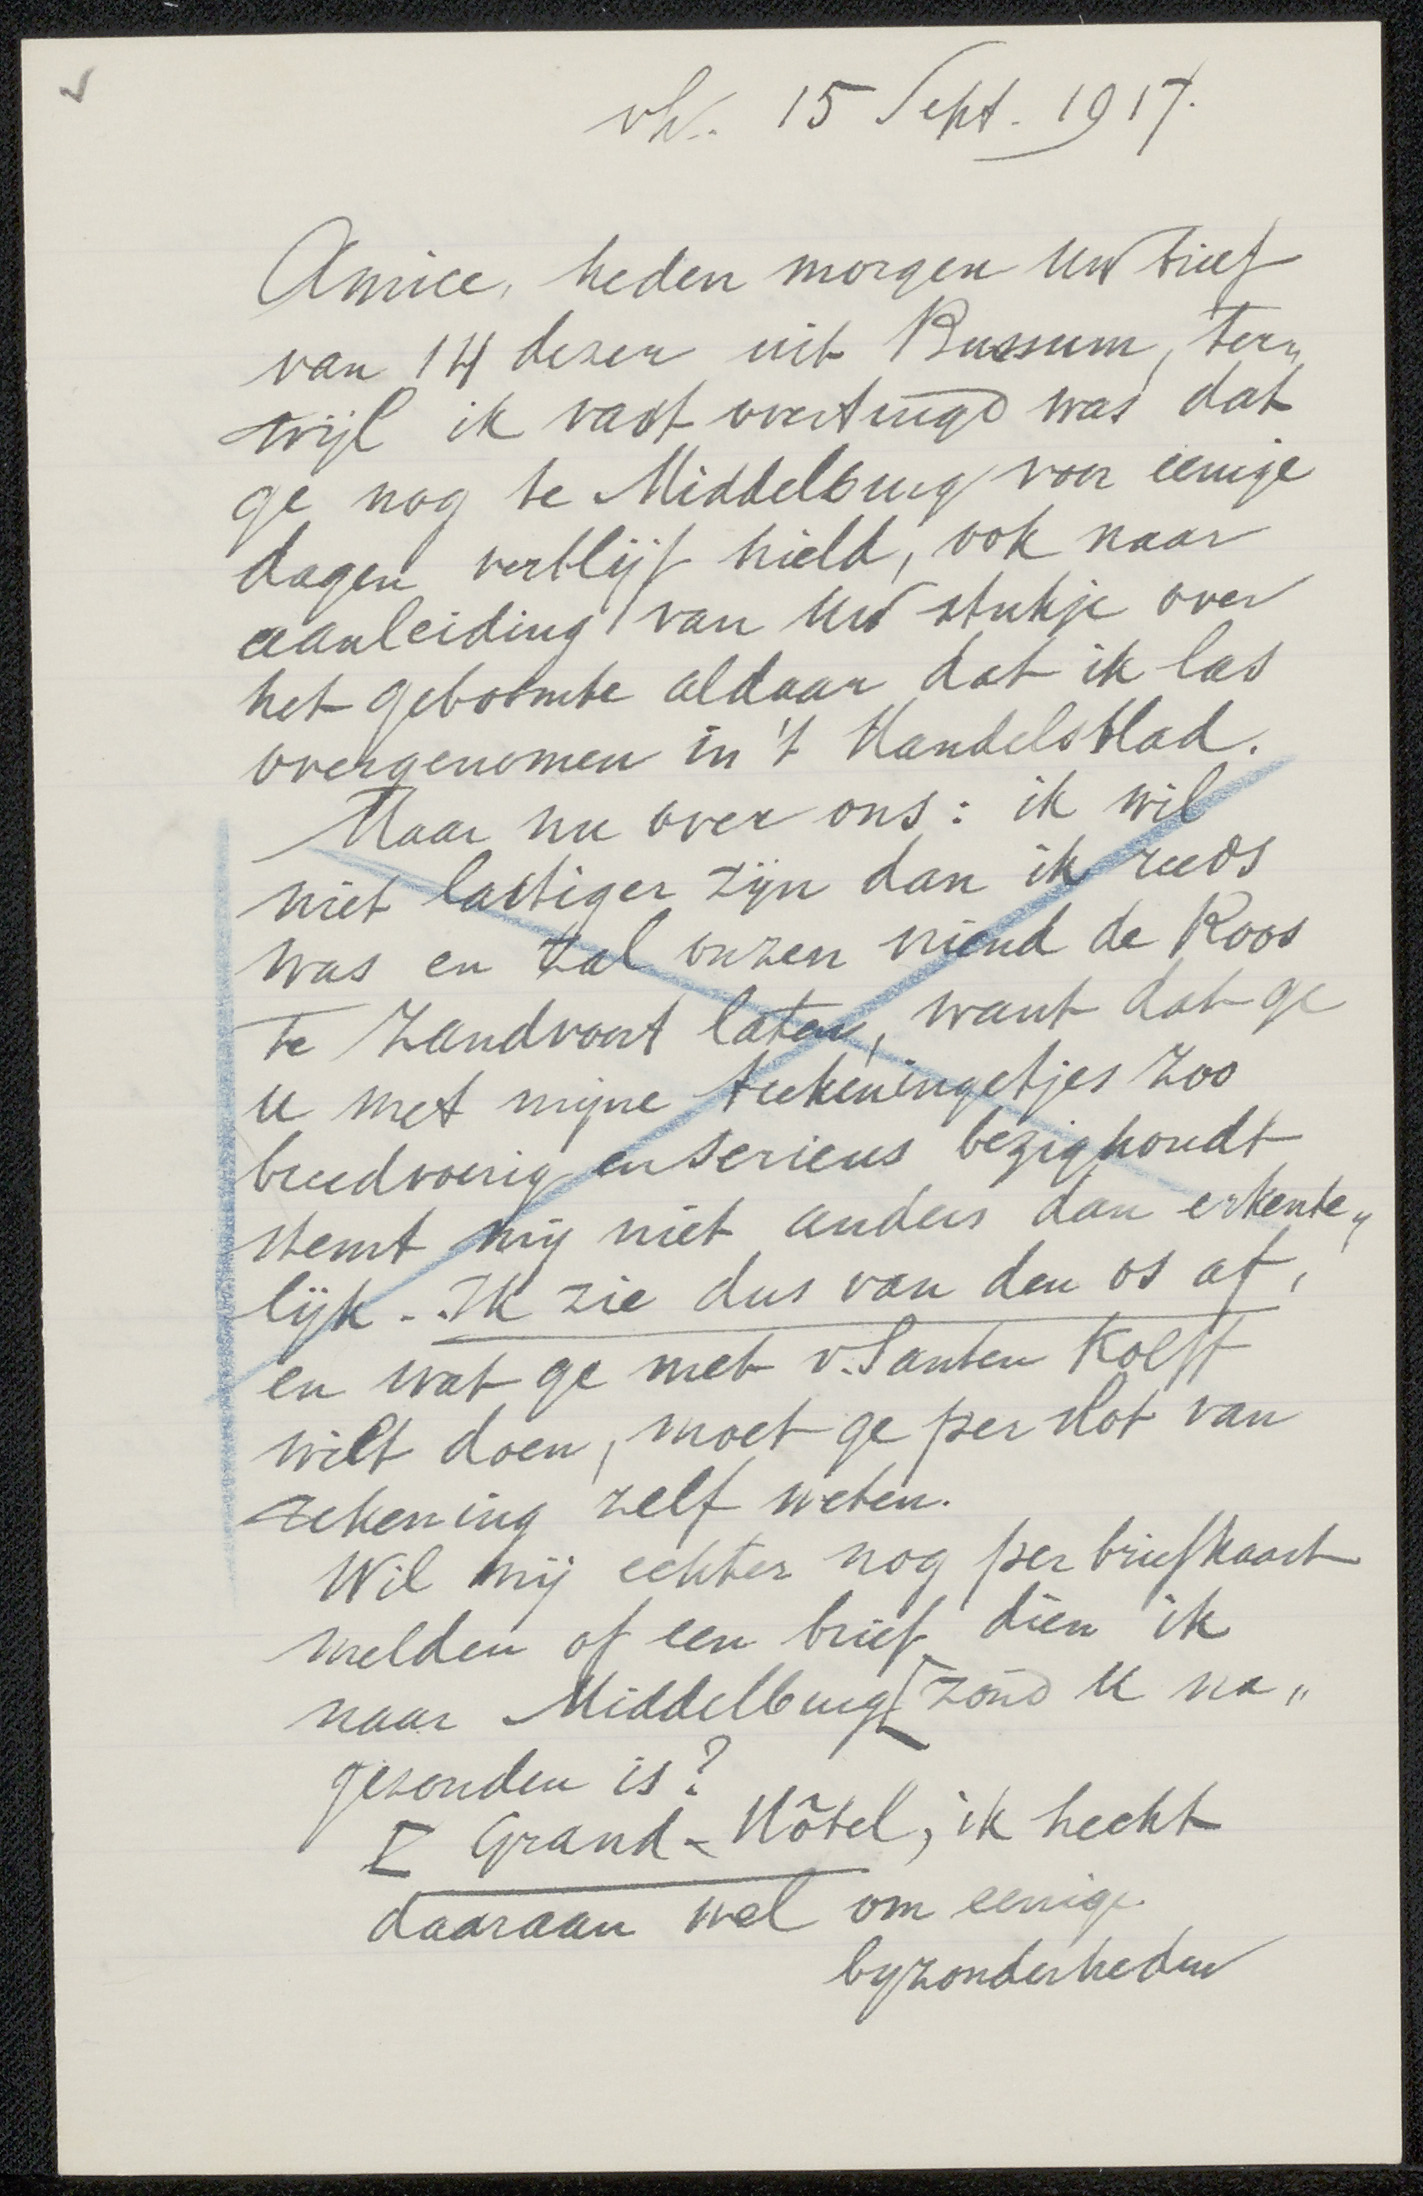 vh. 15 Sept. 1917.
Amice, heden morgen Uw brief
van 14 dezer uit Bussum, ter„
wijl ik vast overtuigd was dat
ge nog te Middelburg voor eenige
dagen verblijf hield, ook naar
aanleiding van Uw stukje over
het geboomte aldaar dat ik las
overgenomen in 't Handelsblad.
Maar nu over ons: ik wil
niet lastiger zijn dan ik reeds
was en zal onzen vriend de Roos
te Zandvoort laten, want dat ge
u met mijne teekeningetjes zoo
breedvoerig en serieus bezighoudt
stemt mij niet anders dan erkente„
lijk. Ik zie dus van den os af,
en wat ge met v. Santen Kolff
wilt doen, moet ge per slot van
rekening zelf weten.
Wil mij echter nog per briefkaart
melden of een brief dien ik
naar Middelburg [ zond U na„
gezonden is?
[ Grand-Hôtel, ik hecht
daaraan wel om eenige
byzonderheden